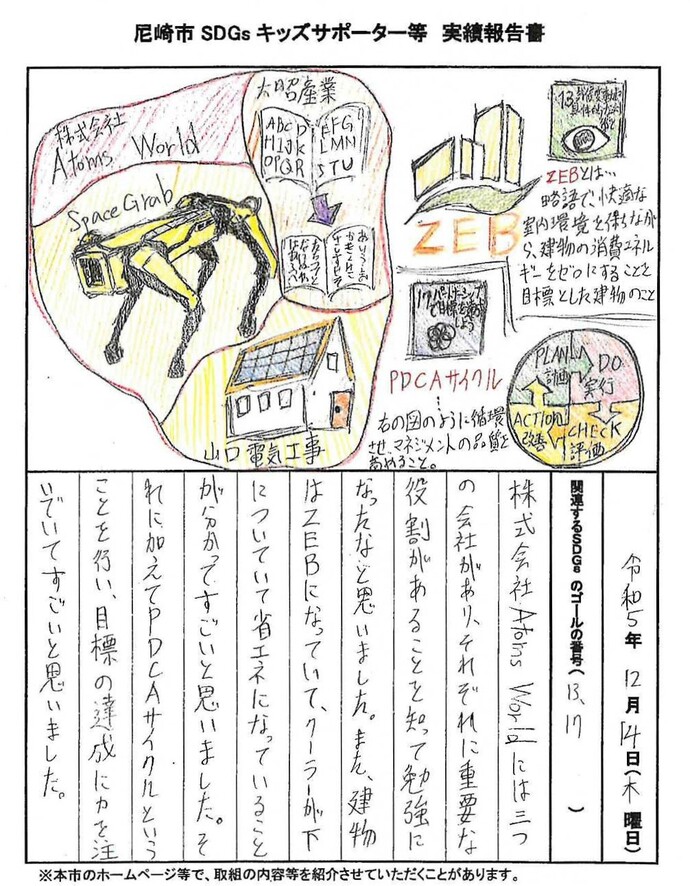 尼崎市 SDGs キッズサポーター等 実績報告書
株式会社
Atoms World
太昭産業
ABCD
HIJK
OPQR
EFG
LMN
STU
SpaceGrab
山口電気工事
ZEB
ZEBとは…
略語で快適な
室内環境を保ちなが
ら、建物の消費エネル
ギーをゼロにすることを
目標とした建物のこと
17パートナーシップ
で目標を達成
しよう
PDCAサイクル
右の図のように循環
させ、マネジメントの品質を
高めること。
PLAN
計画
DO
実行
CHECK
評価
ACTION
改善
令和5年 12月 14日(木曜日)
関連するSDGs のゴールの番号( 13、17 )
株式会社Atoms Worldには三つ
の会社があり、それぞれに重要な
役割があることを知って勉強に
なったなと思いました。また、建物
はZEBになっていて、クーラーが下
についていて省エネになっていること
が分かってすごいと思いました。そ
れに加えてPDCAサイクルという
ことを行い、目標の達成に力を注
いでいてすごいと思いました。
※本市のホームページ等で、取組の内容等を紹介させていただくことがあります。